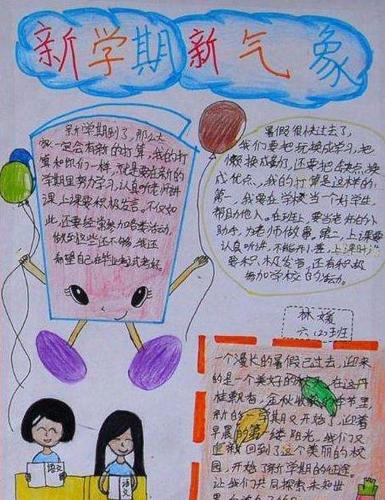 新学期新气象
新学期到了,那么大
家一定会有新的打算,我的打
算和你们一样,就是要在新的
学期里努力学习,认真听老师讲
课,上课要积极发言。不仅如
此,还要经常参加各类活动,
做到这些还不够,我还
希望自己在毕业考试考好。
暑假很快过去了,
我们要把玩换成学习,把
懒换成勤,还要把缺点换
成优点,我的打算是这样的:
第一,我要在学校当一个好学生
帮助他人。在班上,要当老师的小
助手,为老师做事。第二,上课要
认真听讲,不能开小差,上课时
要积极发言,还有积极
参加学校的活动。
林媛
六.(2)班
一个漫长的暑假已过去,迎来
的是一个美好的
新的一学期又开始了,迎着
早晨的第一缕阳光,我们又
回到了这个美丽的校
园,开始了新学期的征途。
让我们共同探索未知世
语文
语文